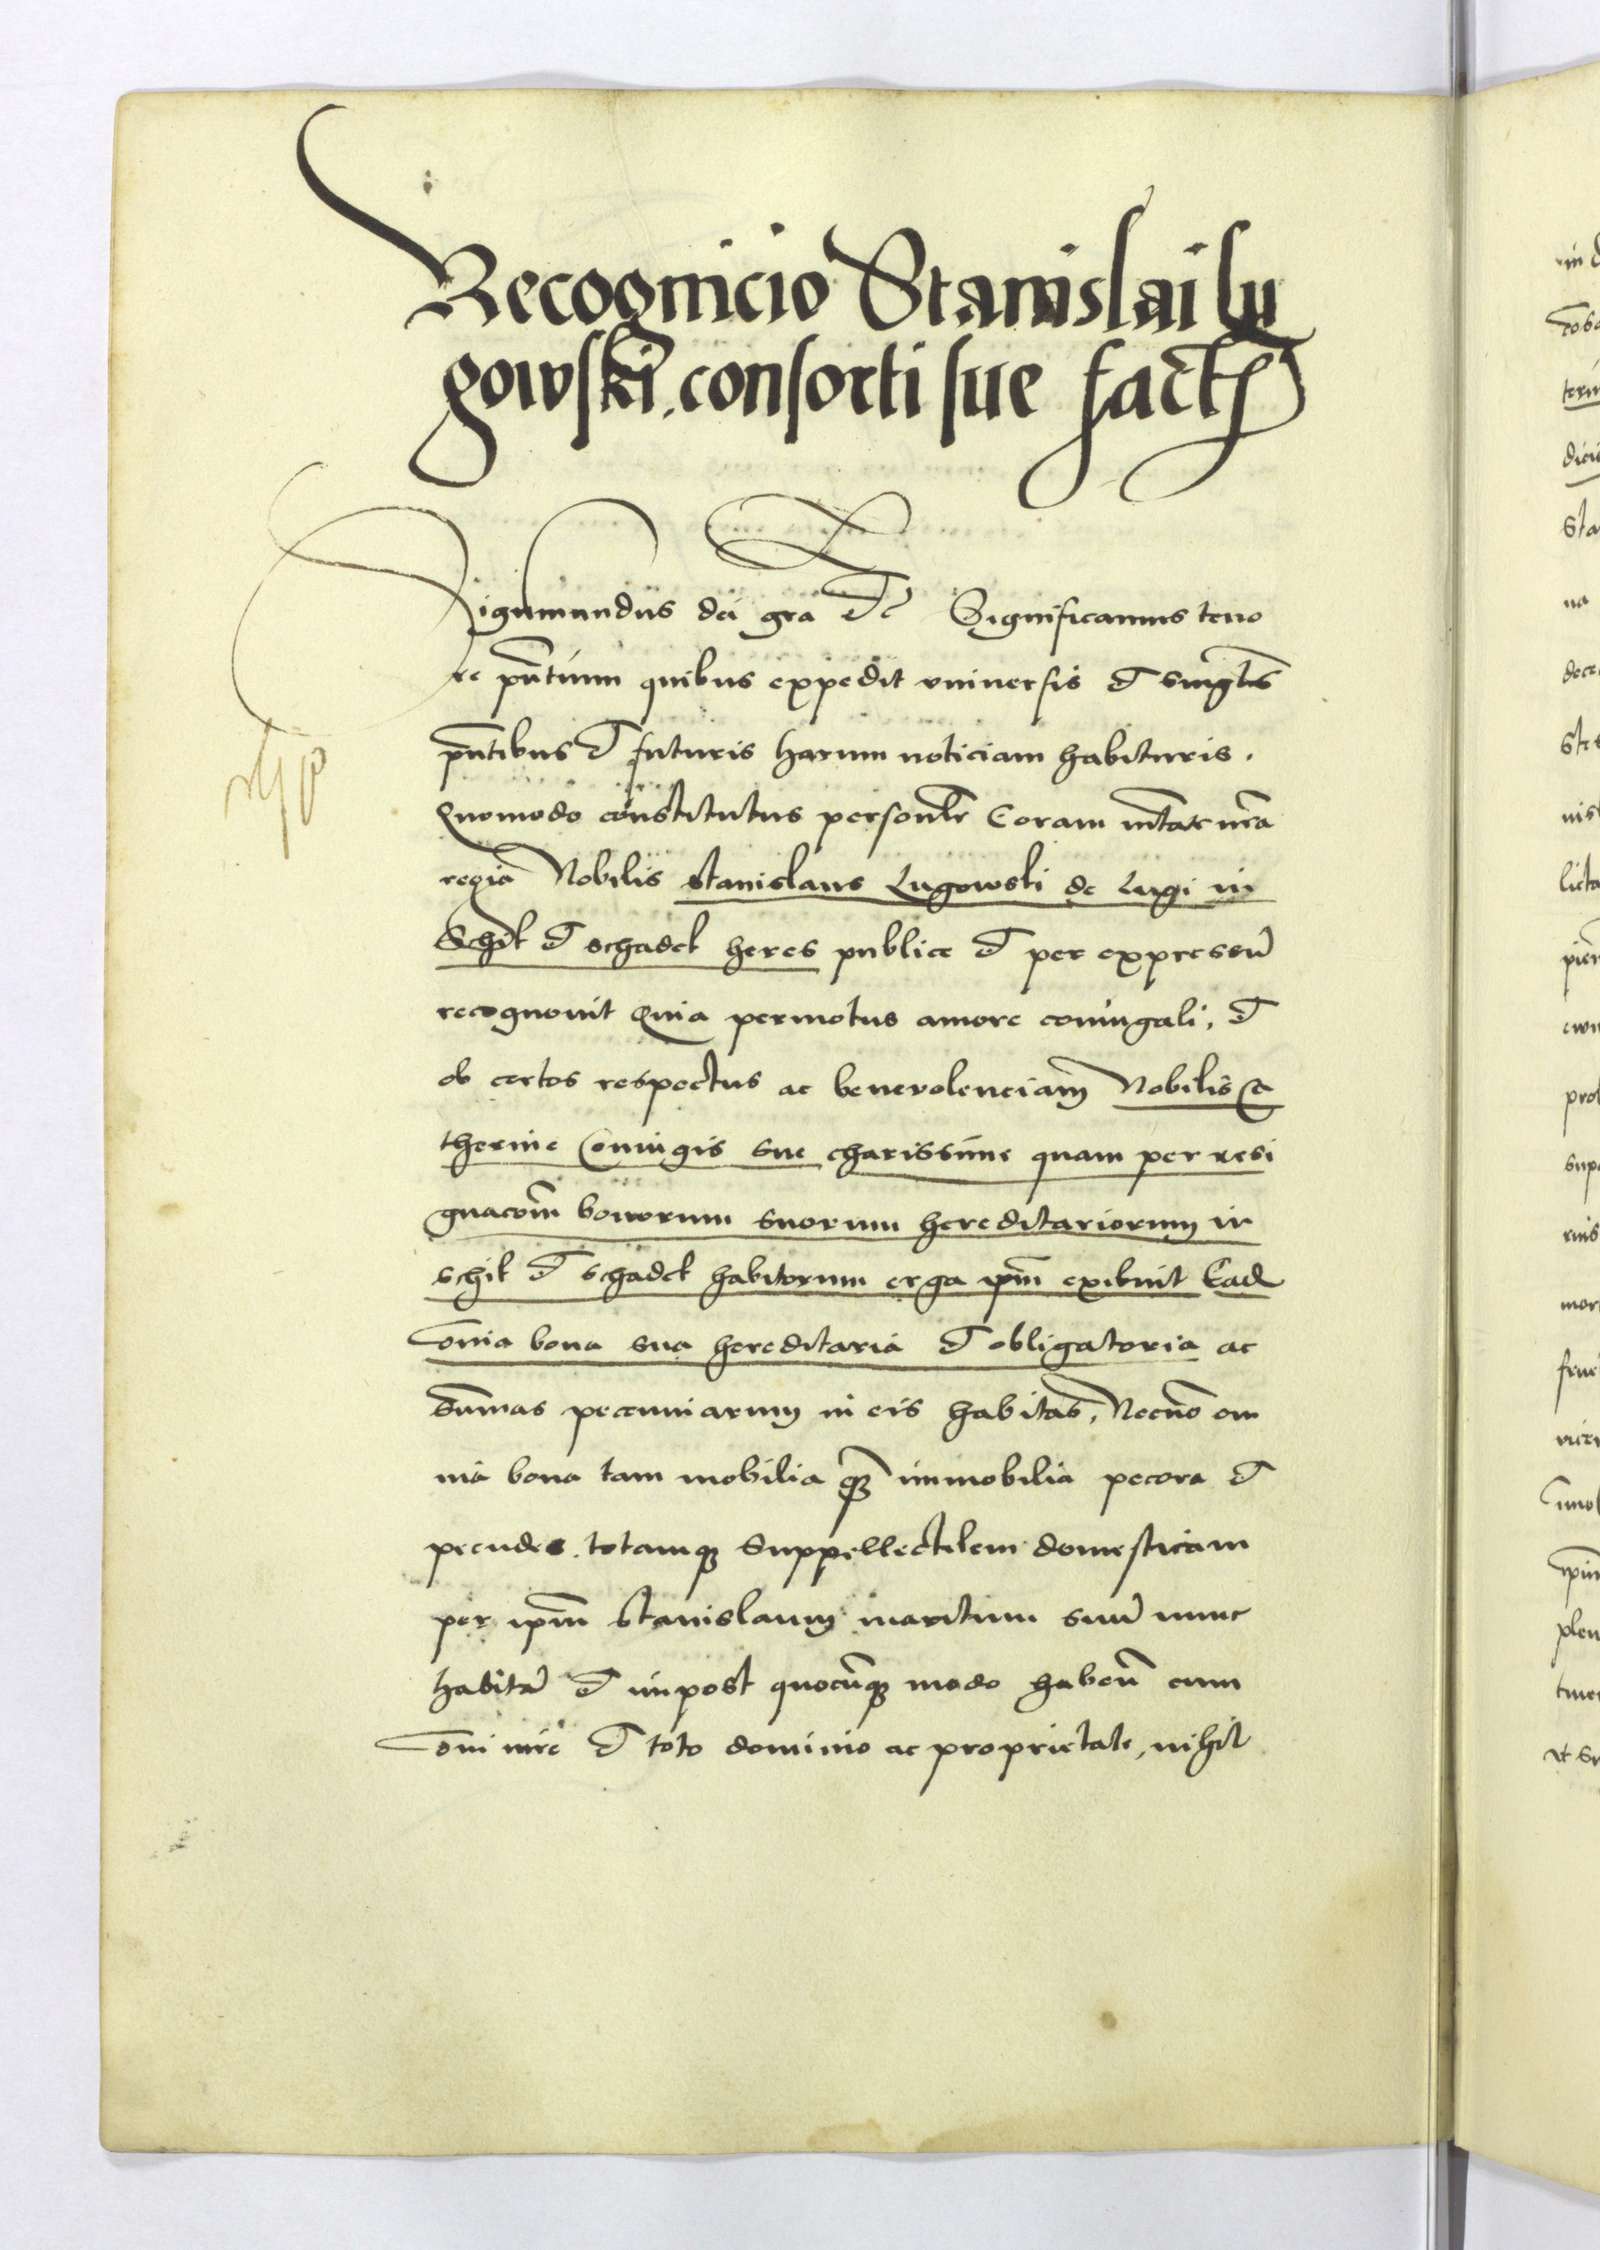 Recognicio Stanislai lu
gowski, consorti sue fact
Sigismundus dei gra Etc Significamus teno
re pñtium quibus expedit vniuersis et singlis
pñtibus et futuris harum noticiam habituris.
Quomodo constitutus personlr Coram mtate nra
regia Nobilis Stanislaus Lugowski de Lugi in
Schil et schadek heres publice et per expressũ
recognouit Quia permotus amore coniugali, et
ob certos respectus ac beneuolenciam Nobilis Ca
therine Coniugis sue charissime quam per resi
gnacoem bonorum suorum hereditariorum in
schil et schadek habitorum erga ipm exibuit Ead
omia bona sua hereditaria et obligatoria ac
sumas pecuniarum in eis habitas, Necno om
nia bona tam mobilia qz immobilia pecora et
pecudes. totamqz suppellectilem domesticam
per ipm Stanislaum maritum suũ nunc
habita et inpost quocũqz modo habenda cum
omi iure et toto dominio ac proprietate, nihil